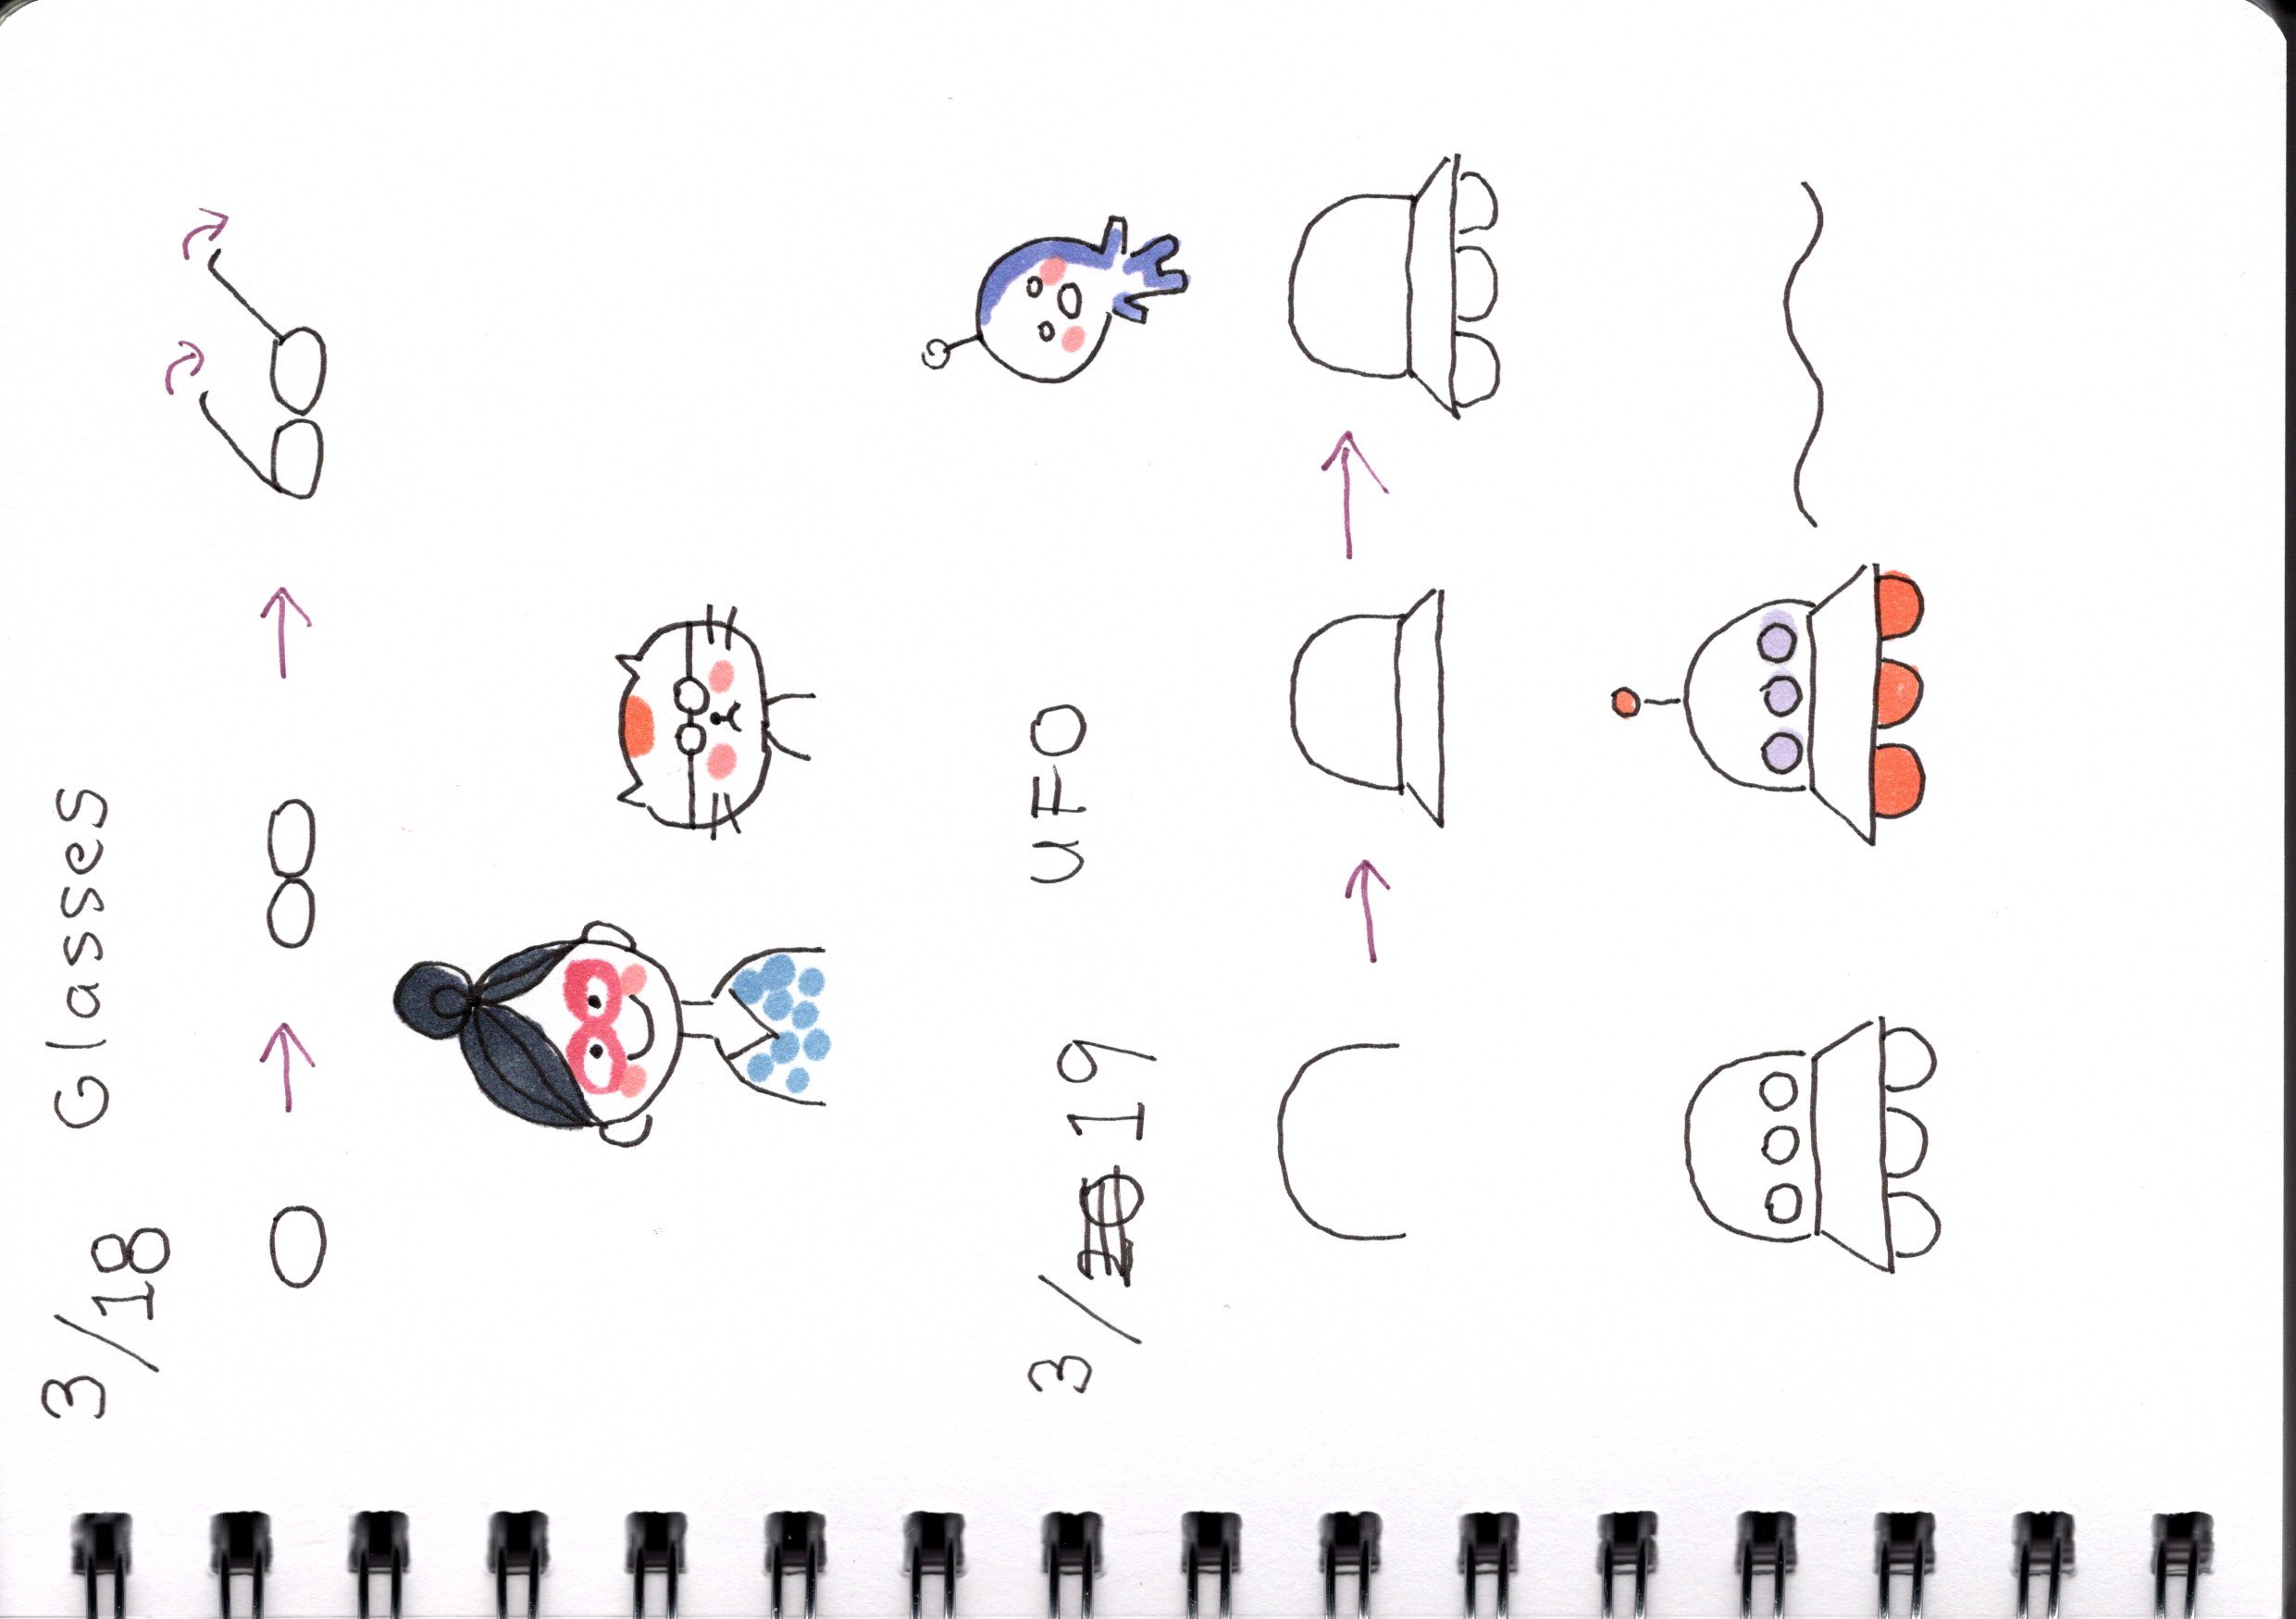 3/18 Glasses
3/20 19 UFO